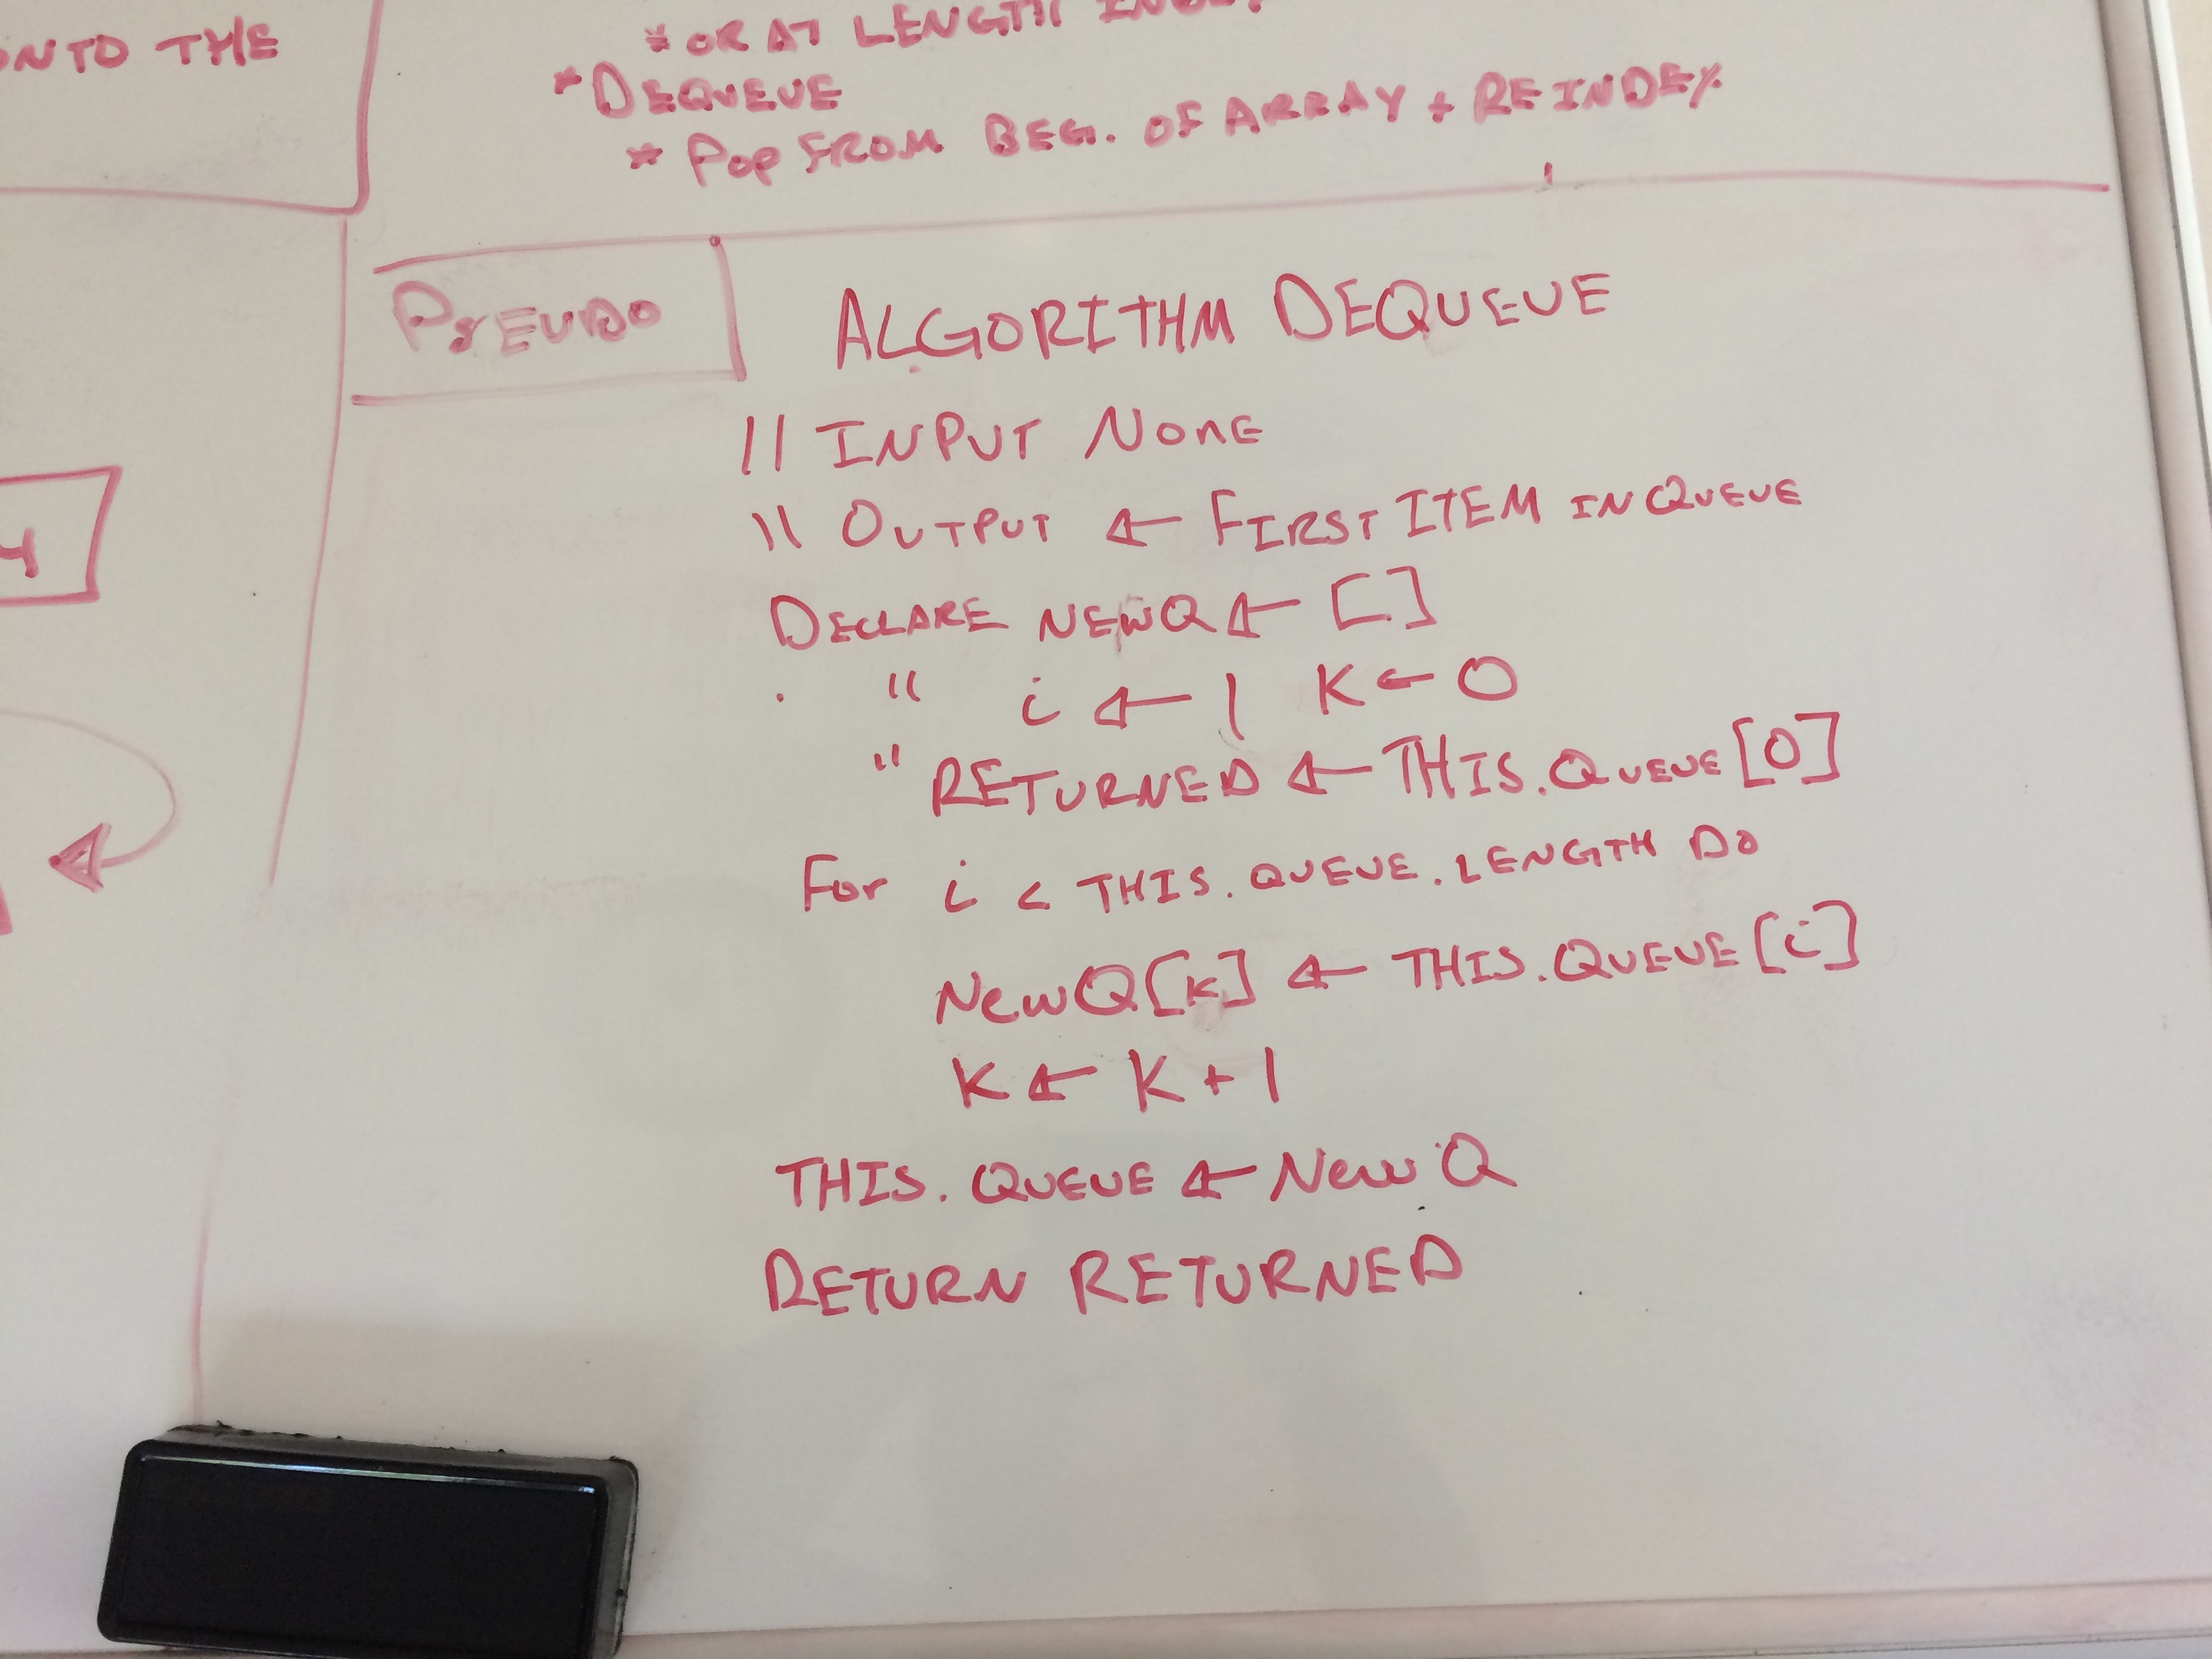 ONTO THE
* OR AT LENGTH
* DEQUEUE
* POP FROM BEG. OF ARRAY + REINDEX
PSEUDO
ALGORITHM DEQUEUE
// INPUT NONE
\\ OUTPUT ← FIRST ITEM IN QUEUE
DECLARE NEWQ ← []
" i ← 1 K ← 0
" RETURNED ← THIS.QUEUE[0]
FOR i < THIS.QUEUE.LENGTH DO
NEWQ[K] ← THIS.QUEUE[i]
K ← K + 1
THIS.QUEUE ← NEWQ
RETURN RETURNED
4